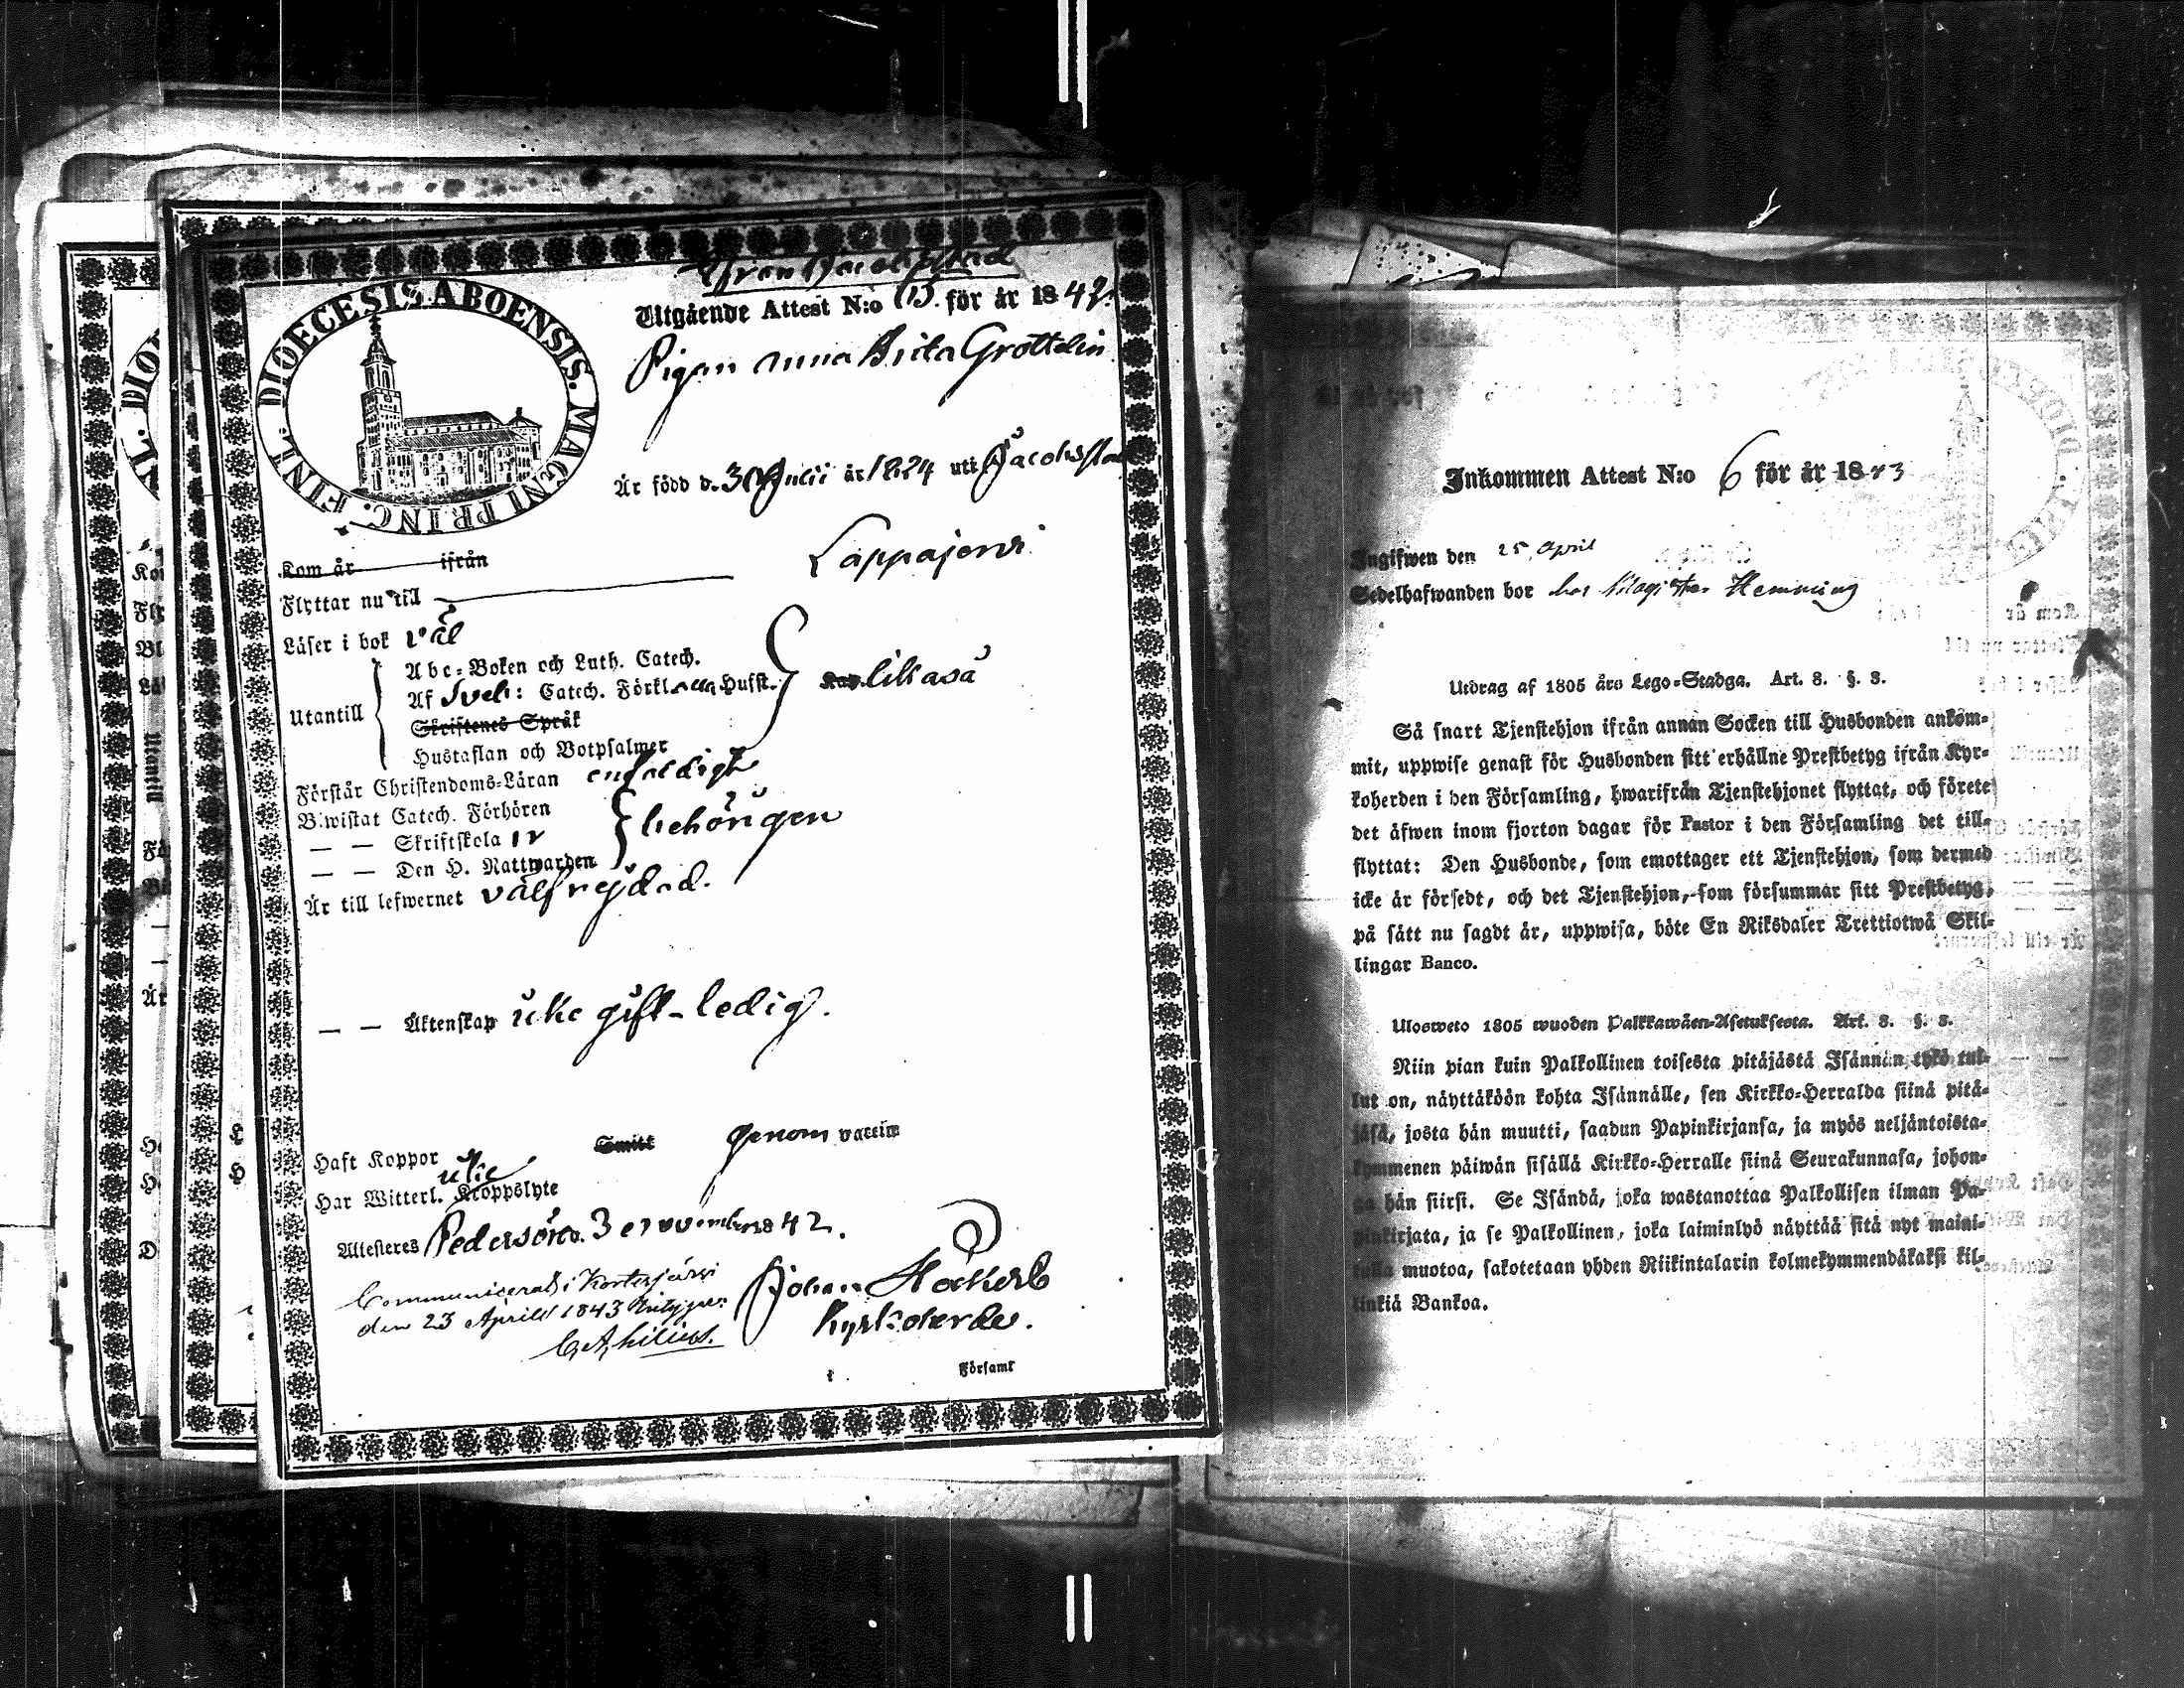 Ifrån Jacobstad
FINL. DIOECESIS ABOENSIS. MAGNI PRINC.
Utgående Attest N:o för år 1842.
Pigan Anna Brita Gröttelin
Är född d. 30 Julii år 1824 uti Jacobstad
Kom år ifrån
Flyttar nu till Lappajervi
Läser i bok väl
Utantill
Abc-Boken och Luth. Catech.
Af Sveb: Catech. Förkl. Husft.
Skriftenes Språk
Hustaflan och Botpsalmer
likaså
Förstår Christendoms-Läran enfaldigt
Biwistat Catech. Förhören
— — Skriftskola
— — Den H. Nattwarden
behörigen
Är till lefwernet välfrejdad.
— — Äktenskap icke gift – ledig.
Haft Koppor Smitt genom vaccin
Har Witterl. icke Kroppslyte
Attesteres Pedersöre d. 3 November 1842.
Communicerat i Kortesjärvi
den 23 Aprill 1843
Johan
Kyrkoherde.
i Församl
Inkommen Attest N:o 6 för år 1843
Ingifwen den 25 April
Sedelhafwanden bor hos Hemming
Utdrag af 1805 års Lego-Stadga. Art. 8. §. 8.
Så snart Tjenstehjon ifrån annan Socken till Husbonden ankom-
mit, uppwise genast för Husbonden sitt erhållne Prestbetyg ifrån Kyr-
koherden i den Församling, hwarifrån Tjenstehjonet flyttat, och förete
det äfwen inom fjorton dagar för Pastor i den Församling det till-
flyttat: Den Husbonde, som emottager ett Tjenstehjon, som dermed
icke är försedt, och det Tjenstehjon, som försummar sitt Prestbetyg,
på sätt nu sagdt är, uppwisa, böte En Riksdaler Trettiotwå Skil-
lingar Banco.
Ulosweto 1805 wuoden Palkkawäen-Asetuksesta. Art. 8. §. 8.
Niin pian kuin Palkollinen toisesta pitäjästä Isännän tykö tul-
lut on, näyttäköön kohta Isännälle, sen Kirkko-Herralda siinä pitä-
jäsä, josta hän muutti, saadun Papinkirjansa, ja myös neljäntoista-
kymmenen päiwän sisällä Kirkko-Herralle siinä Seurakunnasa, johon-
ga hän siirsi. Se Isändä, joka wastanottaa Palkollisen ilman Pa-
pinkirjata, ja se Palkollinen, joka laiminlyö näyttää sitä nyt maini-
tulla muotoa, sakotetaan yhden Riikintalarin kolmekymmendäkaksi kil-
linkiä Bankoa.